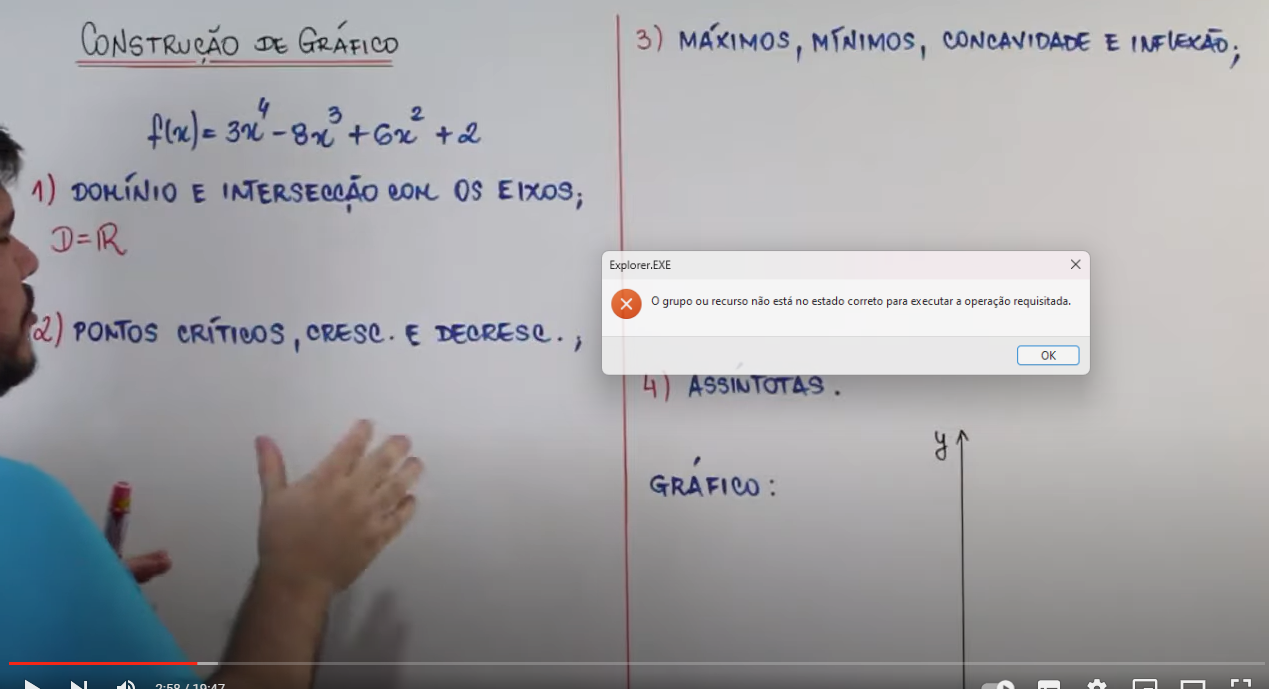 CONSTRUÇÃO DE GRÁFICO
f(x) = 3x⁴ - 8x³ + 6x² + 2
1) DOMÍNIO E INTERSECÇÃO COM OS EIXOS;
D = ℝ
2) PONTOS CRÍTICOS, CRESC. E DECRESC. ;
3) MÁXIMOS, MÍNIMOS, CONCAVIDADE E INFLEXÃO;
Explorer.EXE
O grupo ou recurso não está no estado correto para executar a operação requisitada.
OK
4) ASSÍNTOTAS.
GRÁFICO:
y
2:58 / 19:47